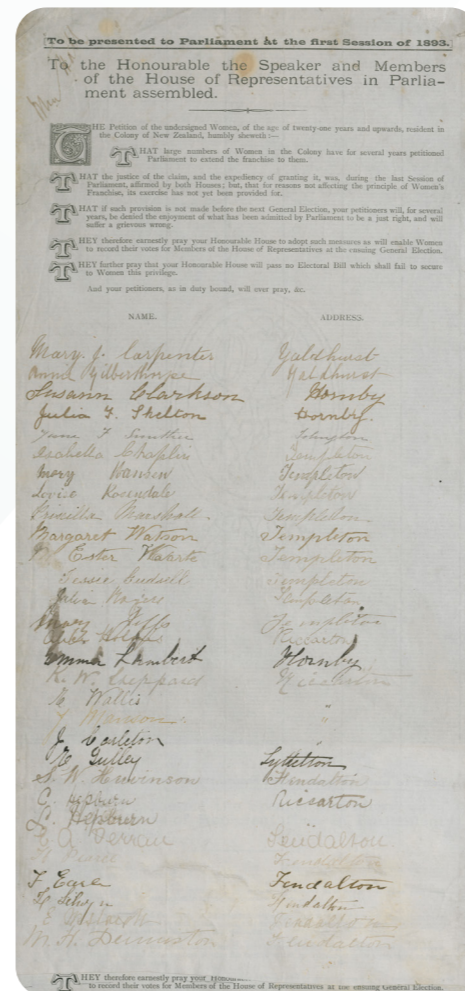 To be presented to Parliament at the first Session of 1893.
To the Honourable the Speaker and Members
of the House of Representatives in Parlia-
ment assembled.
THE Petition of the undersigned Women, of the age of twenty-one years and upwards, resident in
the Colony of New Zealand, humbly sheweth:—
THAT large numbers of Women in the Colony have for several years petitioned
Parliament to extend the franchise to them.
THAT the justice of the claim, and the expediency of granting it, was, during the last Session of
Parliament, affirmed by both Houses; but, that for reasons not affecting the principle of Women's
Franchise, its exercise has not yet been provided for.
THAT if such provision is not made before the next General Election, your petitioners will, for several
years, be denied the enjoyment of what has been admitted by Parliament to be a just right, and will
suffer a grievous wrong.
THEY therefore earnestly pray your Honourable House to adopt such measures as will enable Women
to record their votes for Members of the House of Representatives at the ensuing General Election.
THEY further pray that your Honourable House will pass no Electoral Bill which shall fail to secure
to Women this privilege.
And your petitioners, as in duty bound, will ever pray, &c.
NAME. ADDRESS.
Mary J. Carpenter Yaldhurst
Annie Gilberthorpe Yaldhurst
Susann Clarkson Hornby
Julia G. Skelton Hornby.
Isabella Chaplin Templeton
Mary Templeton
Louisa Rosendale Templeton
Priscilla Marshall Templeton
Margaret Watson Templeton
M Ester Templeton
Jessie Templeton
Julia Templeton
Mary Templeton
Holmes Riccarton
Emma Lambert Hornby
K. W. Sheppard Riccarton
Wallis "
"
J Carleton "
E Gulley Lyttelton
S. W. Hendalton
C. Hepburn Riccarton
C. Hepburn
E A Fendalton
Pence Fendalton
F Eyre Fendalton
Fendalton
E Fendalton
M. A. Fendalton
THEY therefore earnestly pray your
to record their votes for Members of the House of Representatives at the ensuing General Election.